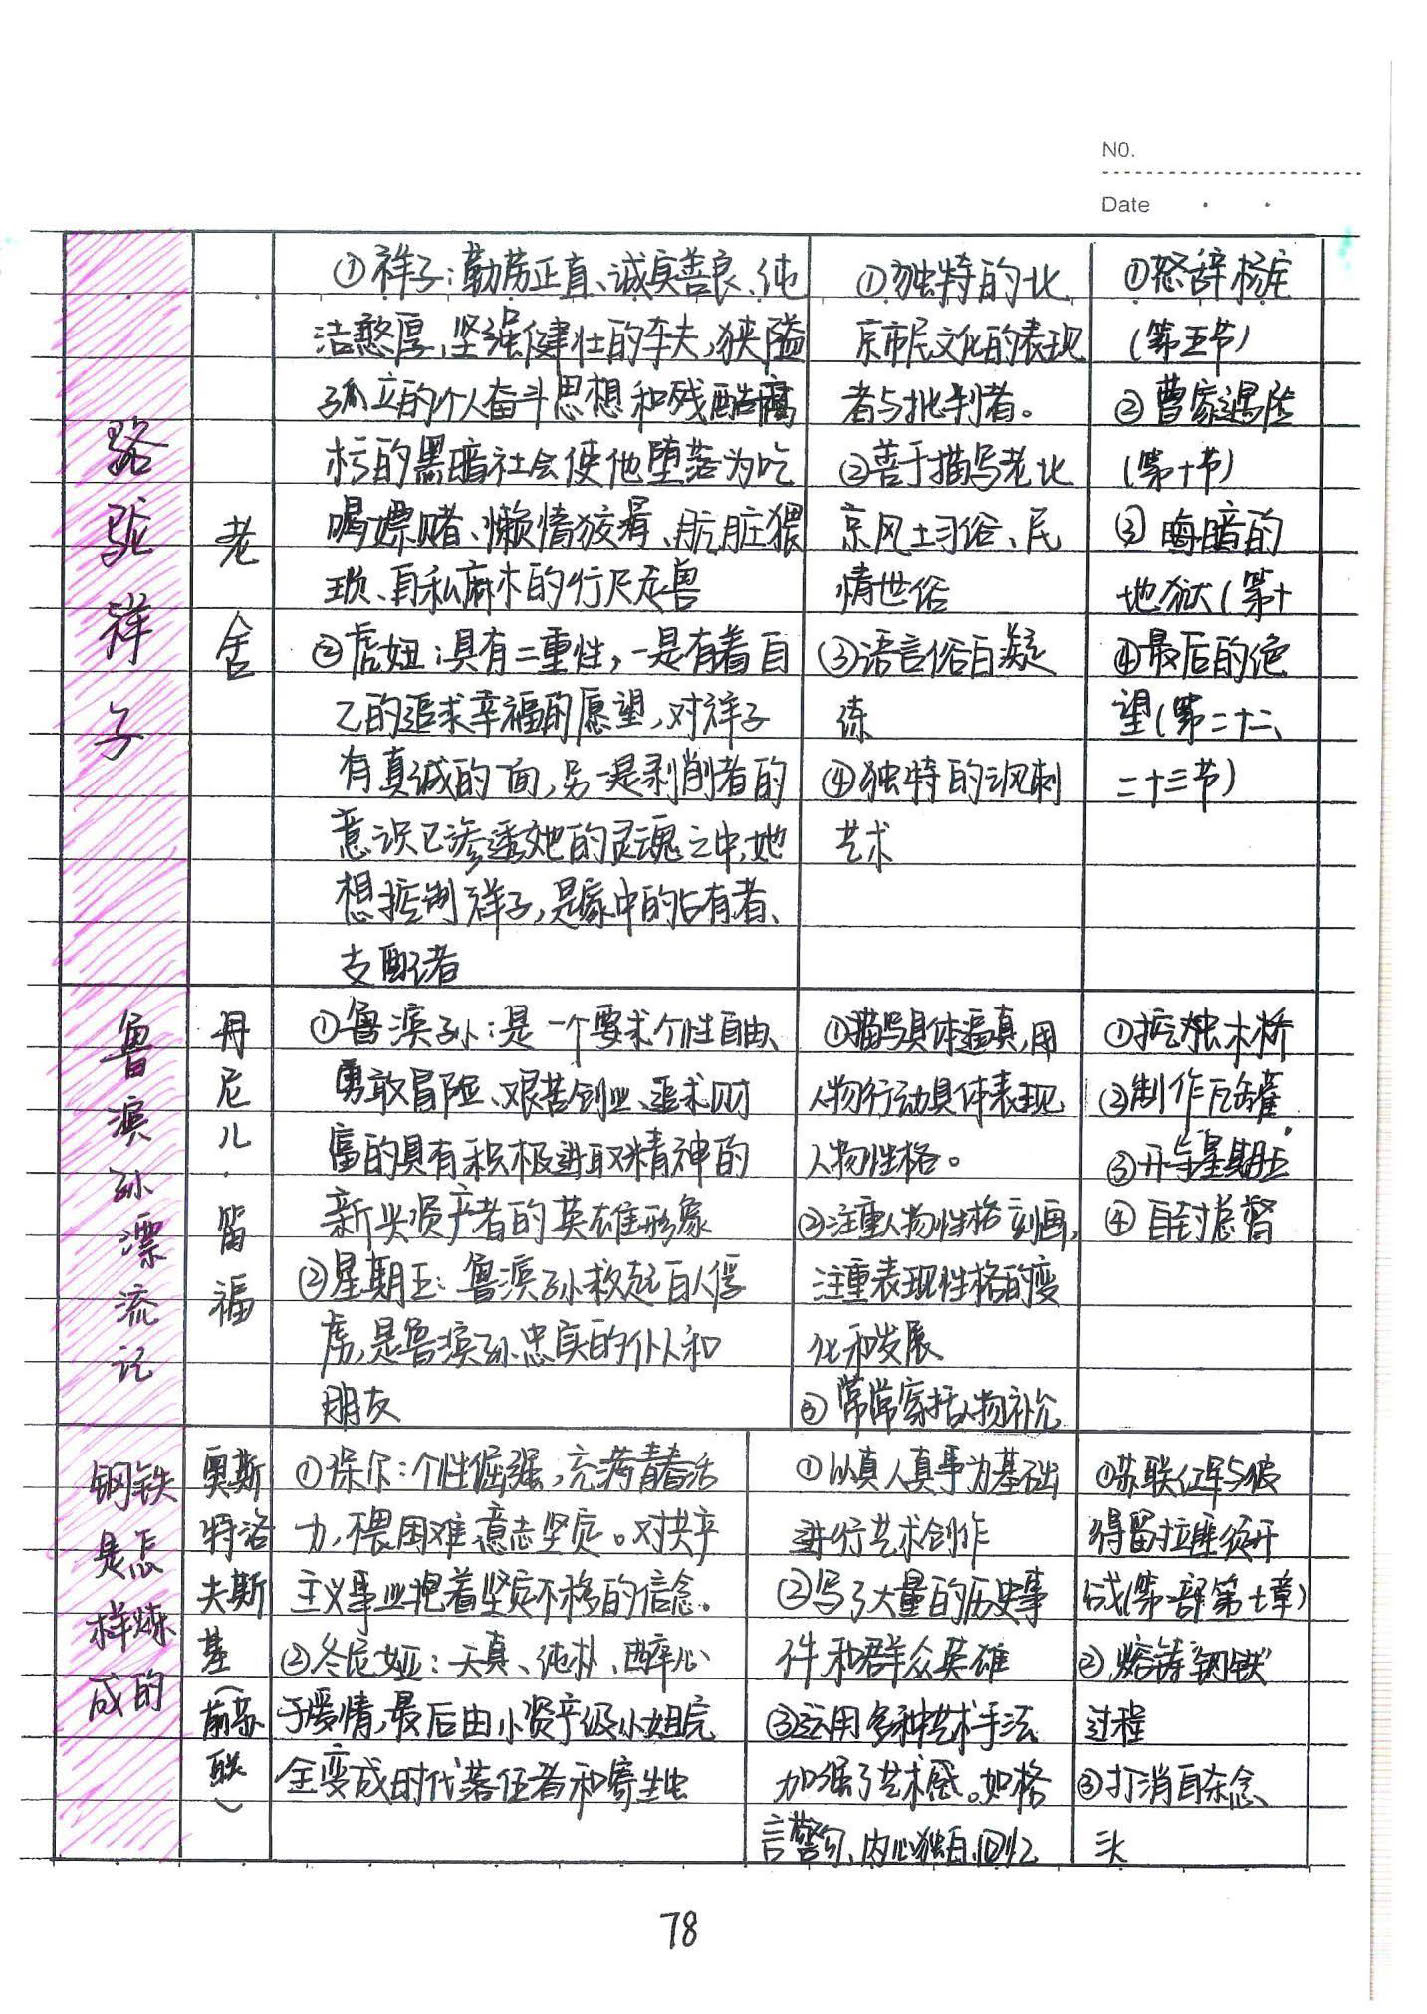 NO.
Date
骆驼祥子
老舍
①祥子：勤劳正直、诚实善良、纯
洁憨厚，坚强健壮的车夫，狭隘
孤立的个人奋斗思想和残酷腐
朽的黑暗社会使他堕落为吃
喝嫖赌、懒惰狡猾、肮脏猥
琐、自私麻木的行尸走兽
②虎妞：具有二重性，一是有着自
己的追求幸福的愿望，对祥子
有真诚的一面，另一是剥削者的
意识已渗透她的灵魂之中，她
想控制祥子，是家中的占有者、
支配者
①独特的北
京市民文化的表现
者与批判者。
②善于描写老北
京风土习俗、民
情世俗
③语言俗白凝
练
④独特的讽刺
艺术
①怒辞杨庄
(第五节)
②曹家遇险
(第十节)
③晦暗的
地狱(第十
④最后的绝
望(第二十二、
二十三节)
鲁滨孙漂流记
丹尼儿·笛福
①鲁滨孙：是一个要求个性自由、
勇敢冒险、艰苦创业、追求财
富的具有积极进取精神的
新兴资产者的英雄形象
②星期五：鲁滨孙救起百人俘
虏，是鲁滨孙忠实的仆人和
朋友
①描写具体逼真，用
人物行动具体表现
人物性格。
②注重人物性格刻画，
注重表现性格的变
化和发展
③常常穿插人物补允
①挖独木桥
②制作瓦罐
③与星期五
④自封总督
钢铁
是怎
样炼
成的
奥斯
特洛
夫斯
基
(前苏
联)
①保尔：个性倔强，充满青春活
力，不畏困难意志坚定。对共产
主义事业抱着坚定不移的信念。
②冬尼娅：天真、纯朴、醉心
于爱情，最后由小资产级小姐完
全变成时代落伍者和寄生虫
①以真人真事为基础
进行艺术创作
②写了大量的历史事
件和群众英雄
③运用多种艺术手法
加强了艺术感。如格
言警句、内心独白、回忆
①苏联红军与彼
得留拉匪须开
战(第一部第七章)
②熔铸"钢铁"
过程
③打消自杀念
头
78